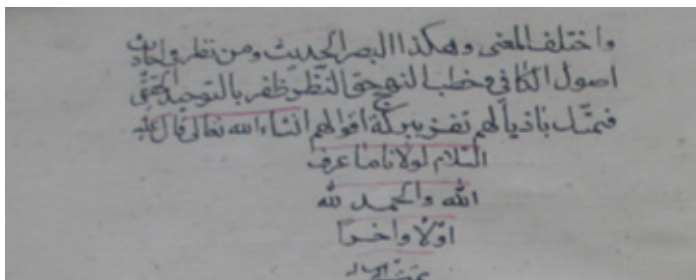 واختلف المعنى وهكذا البصر الحديث ومن نظر في احاديث
اصول الكافي وخطب النهج حق النظر ظفر بالتوحيد الحقيقي
فتمسك باذيالهم تفز ببركة اقوالهم انشاء الله تعالى قال عليه
السلام لولانا ما عرف
الله والحمد لله
اولا واخرا